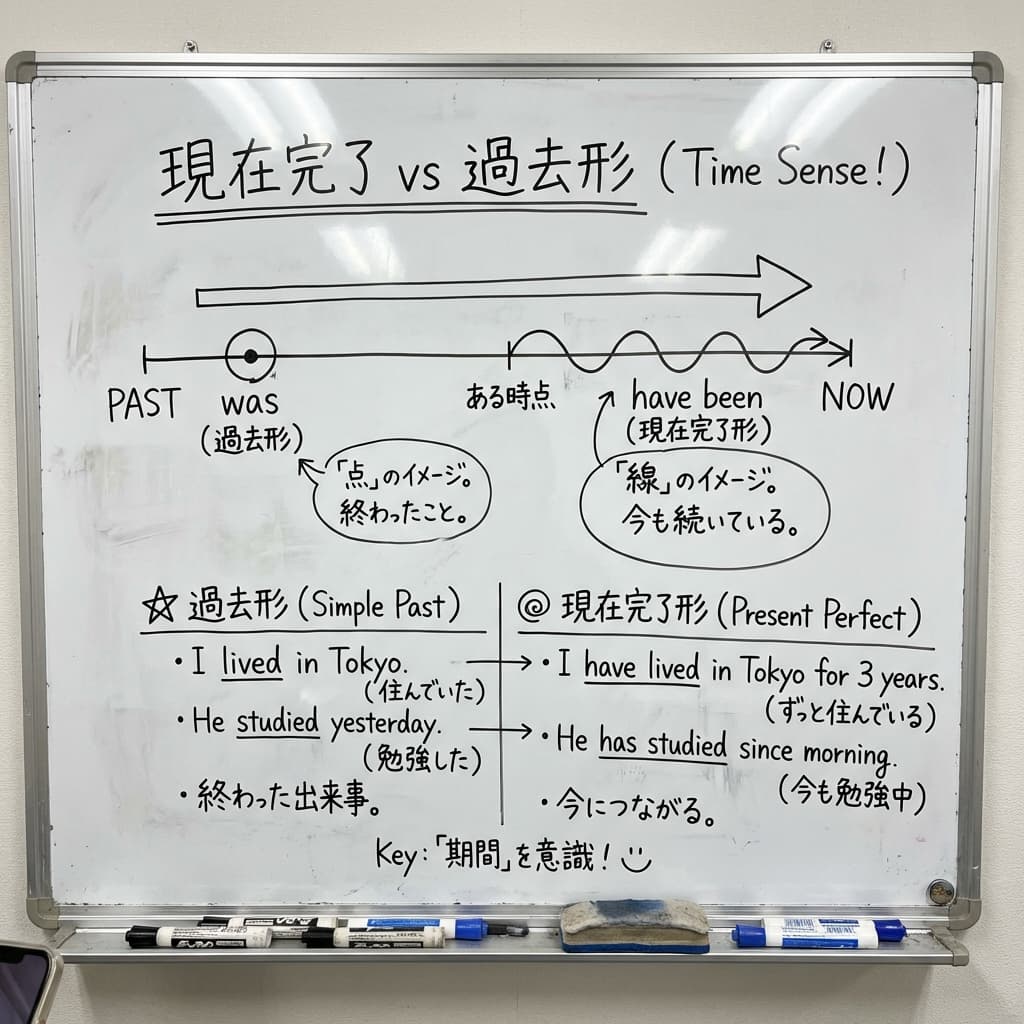 現在完了 vs 過去形 (Time Sense!)
PAST
was
(過去形)
ある時点
have been
(現在完了形)
NOW
「点」のイメージ。
終わったこと。
「線」のイメージ。
今も続いている。
☆ 過去形 (Simple Past)
・I lived in Tokyo.
(住んでいた)
・He studied yesterday.
(勉強した)
・終わった出来事。
◎ 現在完了形 (Present Perfect)
・I have lived in Tokyo for 3 years.
(ずっと住んでいる)
・He has studied since morning.
(今も勉強中)
・今につながる。
Key:「期間」を意識! ☺